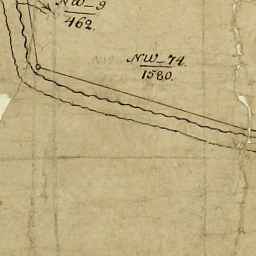 NW_9
462.
NW_74.
1580.